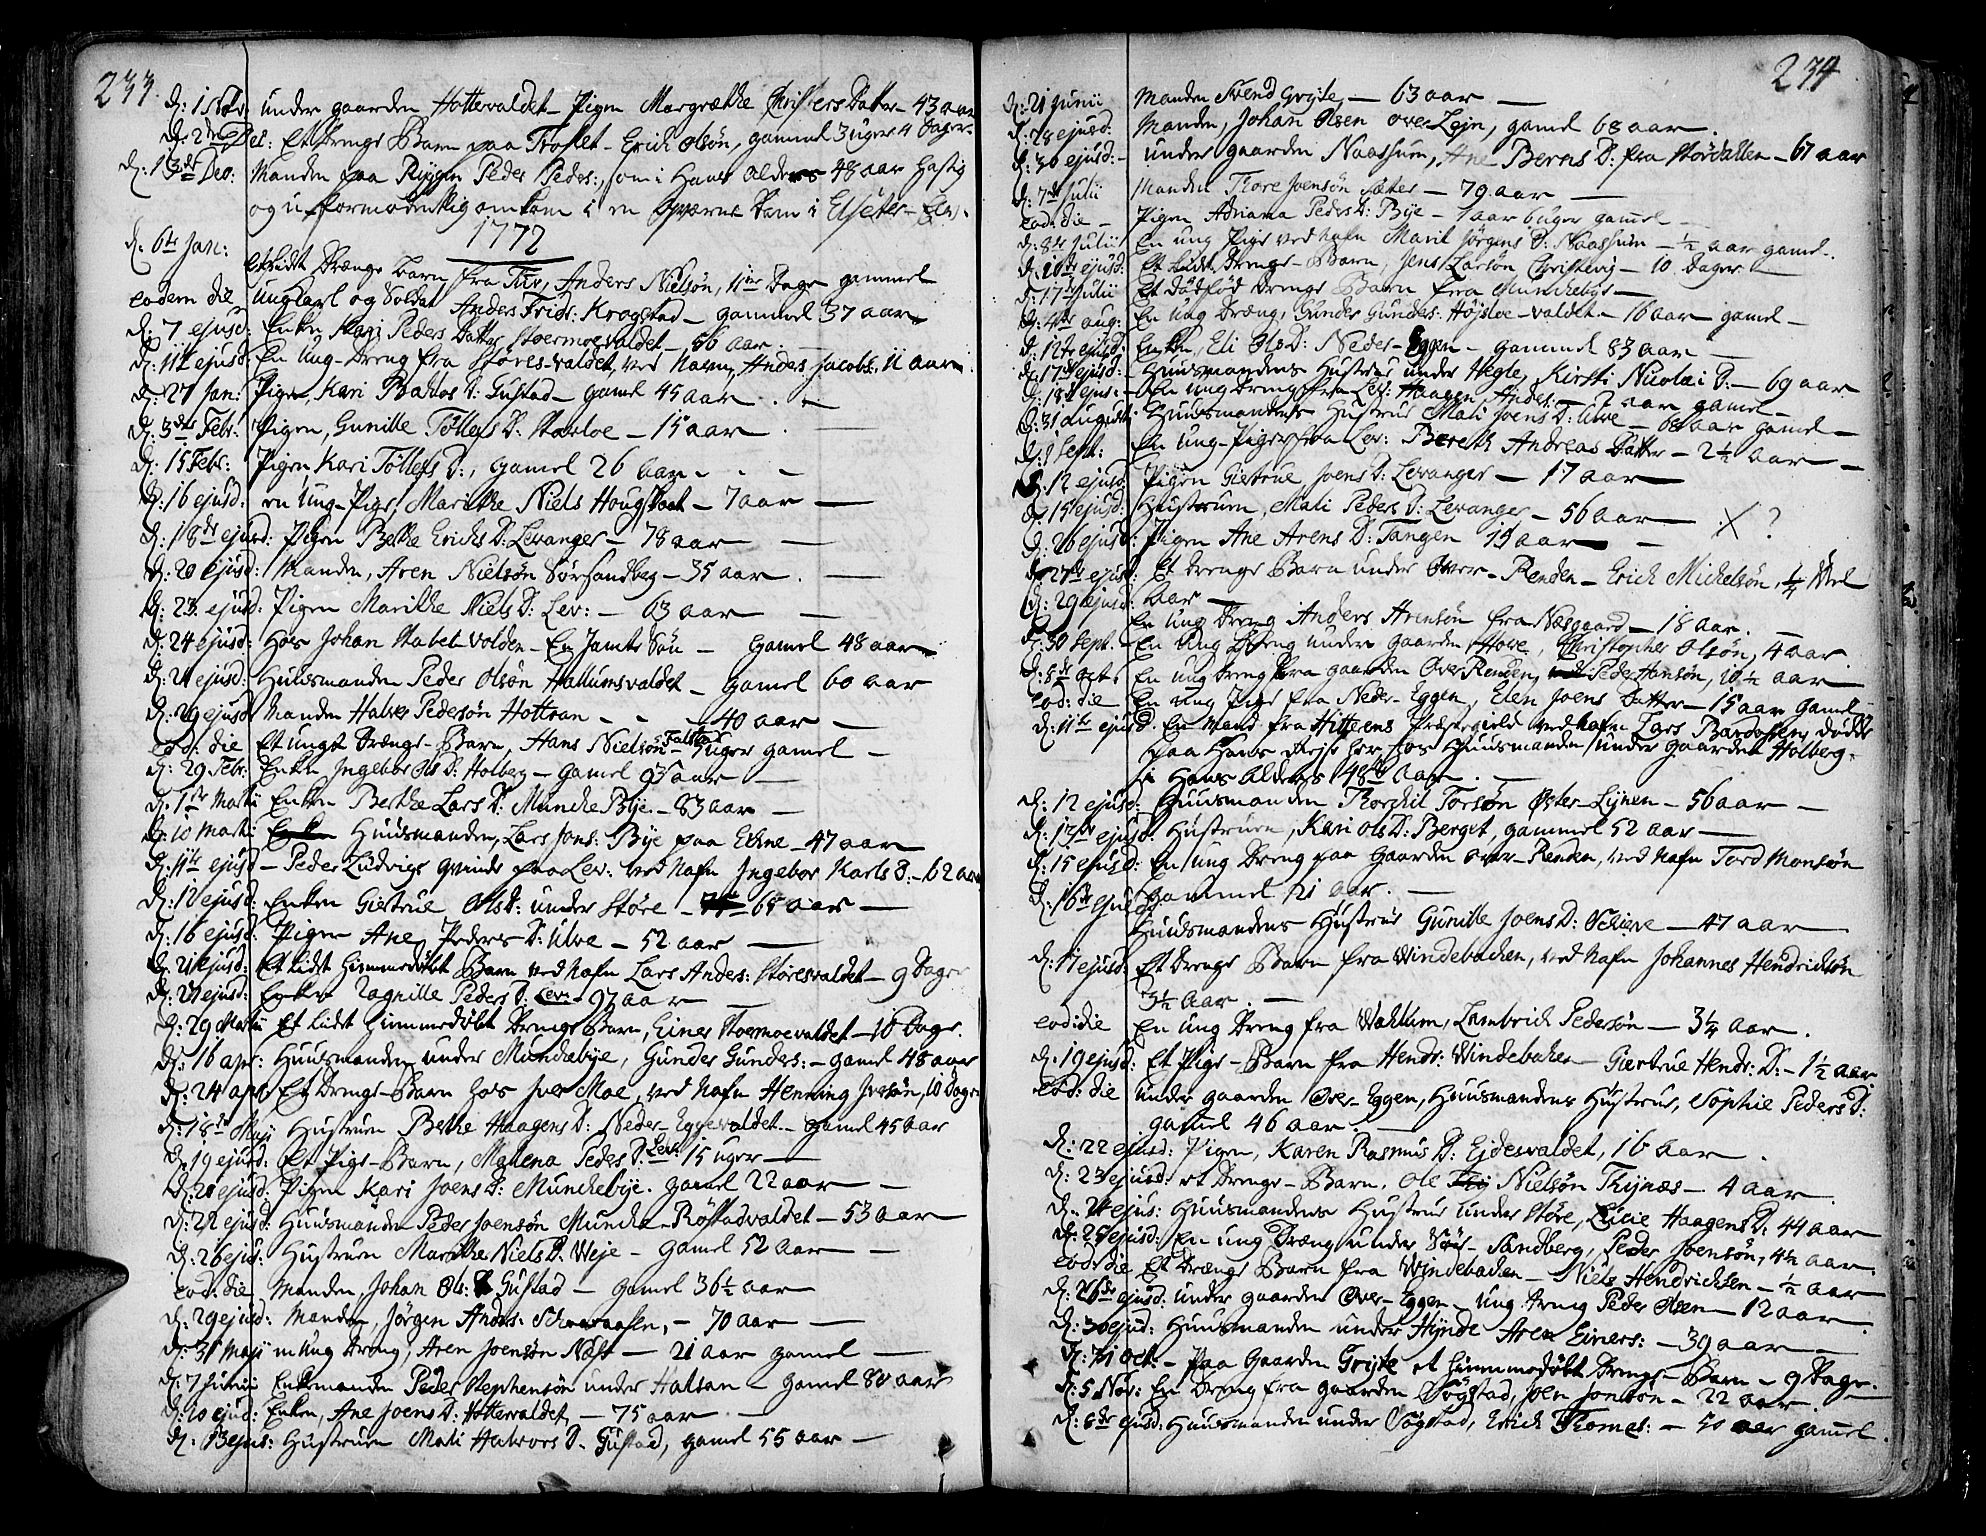 233.
d: 1 Nov: under gaarden Hottevaldet - Pigen Margrethe ChristersDatter - 43 aar
d: 2den Dec: Et Drenge Barn paa - Erich Olsön, gammel 3 uger 4 Dager
d: 13de Dec: Manden paa Ryggen Peder Peders:, som i Hans Alders 48 aar hastig
og uformodentlig omkom i en Qværne Dam i Elfeter-
1772
d: 6te Jan: et lidet Drænge barn fra Tuv, Anders Nielsön, 11 Dage gammel
eodem die Ung Carl og Soldat Anders Fridr: Krogstad - gammel 37 aar
d: 7 ejusd: Enken Kari Peders Datter Stoermoevaldet - 56 aar. -
d: 11te ejusd: En Ung-Dreng fra Störesvaldet, ved Navn, Anders Jacobs: 11 aar
d: 27 Jan: Pigen, Kari D: Gustad - gamel 45 aar . -
d: 3de Febr: Pigen, Gunille Töllefs D: - 15 aar . -
d: 15 Febr: Pigen Kari Töllefs D:, gamel 26 aar - . -
d: 16 ejusd: en Ung-Pige, Marithe Niels - 7 aar -
d: 18de ejusd: Pigen Bethe Erichs D: Levanger - 78 aar -
d: 20 ejusd: Manden, Aren Nielsön Sörsandberg - 35 aar . -
d: 23 ejusd: Pigen Marithe Niels D: Lev: - 63 aar -
d: 24 ejusd: Hos Johan Stabel Volden - En Jamte Sön - gamel 48 aar
d: 21 ejusd: Huusmanden Peder Olsön Hallumsvaldet - gamel 60 aar
d: 29 ejusd: Manden Halvor Pedersön Hottran - - - 40 aar -
eod: die Et ungt Drænge-Barn, Hans Nielsön Falstad - 9 uger gamel -
d: 29 Febr: Enken Ingebor Ols D: Holberg - gamel 93 aar -
d: 1ste Martii Enken Berthe Lars D: Munche Bye - 83 aar -
d: 10 Martii Huusmanden, Lars Jons: Bye paa Ekne - 47 aar
d: 11te ejusd - Peder Ludvigs qvinde paa Lev: ved Nafn Ingebor Karls D: - 62 aar
d: 12 ejusd: Enken Giertrue Ols D: under Störe - 65 aar -
d: 16 ejusd: Pigen Ane Peders D: Ulve - 52 aar -
d: 21 ejusd: Et lidet hiemmedöbt Barn ved Nafn Lars Anders: Störesvaldet - 9 Dager
d: 27 ejusd: Enke Ragnille Peders D: Lev: 97 aar -
d: 29 Martii Et lidet hiemmedöbt Drenge Barn, Einer Stoermoevaldet - 16 Dage.
d: 16 apr: Huusmanden under Munckebye, Gunder Gunders: - gamel 48 aar
d: 24 apr: Et Drenge-Barn hos Iver Moe, ved Nafn Henning Iversön, 10 Dage
d: 18de Maji Hustruen Bethe Haagens D: Neder-Eggevaldet - gamel 45 aar
d: 19 ejusd: Et Pige-Barn, Malena Peders D: Lev: 15 uger -
d: 20 ejusd: Pigen Kari Joens D: Munckebye. gamel 22 aar -
d: 22 ejusd: Huusmanden Peder Joensön Munche-Röstadvaldet - 53 aar
d: 26 ejus: Hustruen Marithe Niels D: Weje - gamel 52 aar -
eod: die Manden, Johan Ols: Gustad - gamel 36½ aar -
d: 29 ejusd: Manden, Jörgen Anders: , - 70 aar -
d: 31 Maji en ung Dreng, Aren Joensön Næss - 21 aar gamel -
d: 7 Junii Enkemanden Peder Stephensön under Halsan - gamel 80 aar
d: 10 ejusd: Enken, Ane Joens D: Hottevaldet, - 75 aar -
d: 13 ejus: Hustruen Mali Halvors D: Gustad, gamel 55 aar -
234
d: 21 Junii Manden Svend Grijte, - 63 aar -
d: 28 ejusd: Manden, Johan Olsen over Lejn, gamel 68 aar .
d: 30 ejusd: - under gaarden Naassum, Ane Bernes D: fra Stördallen - 67 aar
d: 7de Julii Manden Thore Joensön Sæter - 79 aar -
eod: die - Pigen Adriana Peders D: Bye - 1 aar 6 uger gamel -
d: 8de Julii En ung Pige ved Nafn Marit Jörgens D: Naassum - ½ aar gamel -
d: 10de ejusd: Et Lidet Drenge-Barn, Jens Larsön, Christevig - 10 Dager -
d: 17de Julii Et Dödföd Drenge Barn fra Munckebye -
d: 4de aug: En ung Dræng, Gunder Gunders: Höjsloe-valdet - 16 aar gamel -
d: 12te ejusd: Enken, Eli Ols D: Neder-Eggen - gammel 83 aar -
d: 17de ejusd: Huusmandens Hustrue under Hegle, Kirsti Nicolai D: - 69 aar -
d: 18de ejus: - En ung Dreng fra Lev: Haagen Anders: - 2 aar gamel -
d: 31 augusti: Huusmandens Hustrue Mali Joens D: Ulve - 68 aar gamel -
d: 1 Sept: En Ung-Pige fra Lev: Bereth Andreas Datter - 2½ aar -
d: 12 ejusd: Pigen Giertrue Joens D: Levanger - 17 aar -
d: 15 ejusd: Hustruen, Mali Peders D: Levanger - 56 aar - X ?
d: 26 ejusd: Pigen Ane Arens D: Tangen 15 aar - -
d: 27de ejusd: Et Drenge Barn under Over-Renden - Erich Michelsön, ¼ Del
aar -
d: 29 ejusd: En ung Dreng Anders Arnsön fra Næsgaard - 18 aar . -
d: 30 Sept. - En ung Dreng under gaarden Hove, Christopher Olsön, 4 aar.
d: 8de Octr En ung Dreng fra gaarden Over Renden, Peder Hansön, 10½ aar -
eod: die En ung Pige fra Neder-Eggen, Elen Joens Datter - 15 aar gamel -
d: 11te ejusd. En Mand fra Hitterens Præstegield ved Nafn Lars Bardosen, dödde
paa Hans Rejse her, hos Huusmanden under gaarden Holberg.
i Hans alders 48de aar . -
d: 12 ejusd: Huusmanden Thorchil Torsön Oster-Lynen - 56 aar -
d: 13de ejusd: Hustruen, Kari Ols D: Berget, gammel 52 aar -
d: 15 ejusd: En ung Dreng paa Gaarden Over-Renden, ved Nafn Tord Monsön
gammel 21 aar. -
d: 16de ejusd: Huusmandens Hustrue Gunille Joens D: - 47 aar -
d: 17 ejusd: Et Drenge Barn fra Windebachen, ved Nafn Johannes Hendrichsön
3½ aar . -
eod: die En ung Dreng fra Wohlum, Lambrich Pedersön - 3¼ aar.
d: 19 ejusd: Et Pige-Barn fra Hendr: Windebaken - Giertrue Hendr: D: - 1½ aar
eod: die under gaarden Over-Eggen, Huusmandens Hustrue, Sophie Peders D:
gamel 46 aar . -
d: 22 ejusd: Pigen, Karen Rasmus D: Ejdesvaldet, 16 aar .
d: 23 ejusd: et Drenge-Barn, Ole Nielsön Thynæs - 4 aar .
d: 24 ejus: Huusmandens Hustrue under Störe, Lucie Haagens D: 44 aar
d: 25 ejusd: En ung Dræng under Sör-Sandberg, Peder Joensön, 4½ aar .
eod: die Et Drænge Barn fra Windebachen - Niels Hendrichsen - ½ aar
d: 26de ejusd: under gaarden Over-Eggen - ung Dreng Peder Olsen - 12 aar -
d: 30 ejusd: Huusmanden under Hynde Aren Einers: - 39 aar -
d: 31 Oct. - paa Gaarden Grijte et hiemmedöbt Drenge-Barn - 9 Dage -
d: 5 Nov: En Dreng fra gaarden Sögstad, Joen Jonsön - 22 aar.
d: 6de ejusd: Huusmanden under Sögstad, Erich Thomes: - 50 aar gammel.